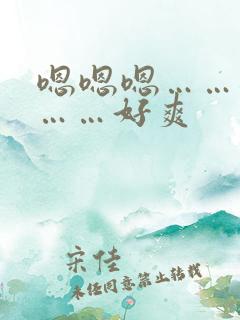 嗯嗯嗯……
……好爽
宋佳
未经同意禁止转载